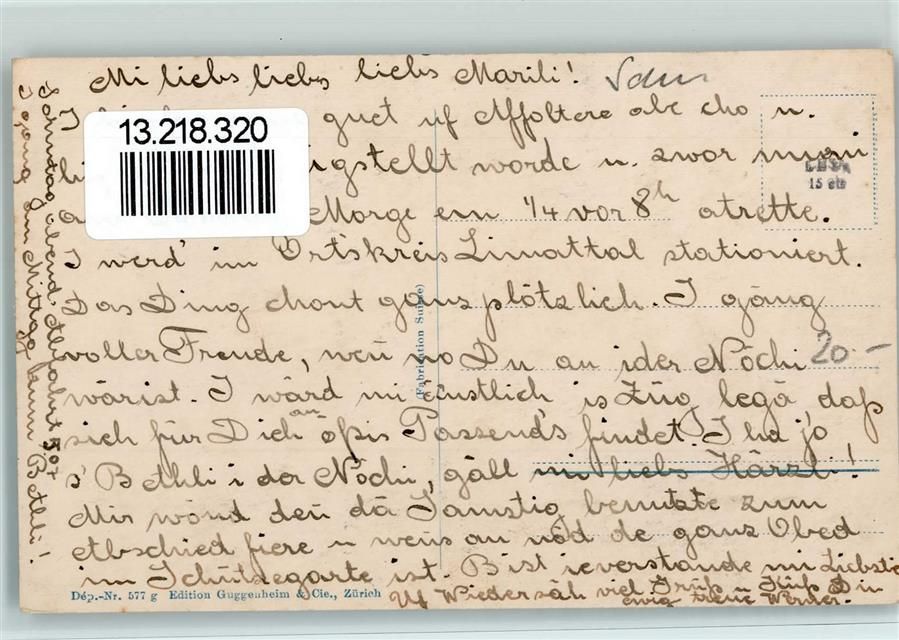 Mi liebs liebs liebs Marili!
13.218.320
I guet uf Affoltere abe cho u.
gstellt worde u. zwor mueni
Morge em 1/4 vor 8h atrette.
I werd' im Ortskreis Limattal stationiert.
Das Ding chont ganz plötzlich. I gäng
voller Freude, weñ no Du au i der Nöchi
wärist. I wärd mi äustlich is Züg legä, daß
sich für Dich au öpis Passend's findet. I ha jo
s' Bethli i der Nöchi, gäll mi liebs Härzli!
Mir wönd deñ dä Samstig benutze zum
Abschied fiere u weñs au nöd de ganz Obed
im Schützegarte ist. Bist ieverstande mi Liebste
Uf Wiedersäh viel Grüß u Küß Din
ewig treue Werner.
Sonntag abend. Abfahrt 507
I gang am Mittag zum Bethli!
15 cts
20.-
(Fabrication Suisse)
Dép.-Nr. 577 g Edition Guggenheim & Cie., Zürich